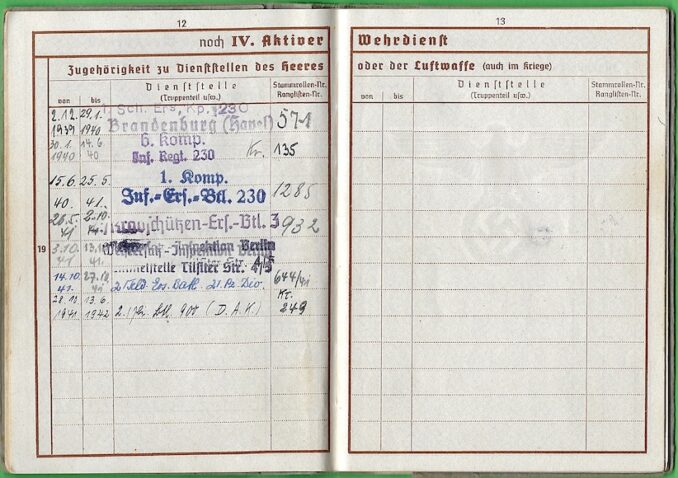 12
noch IV. Aktiver
Zugehörigkeit zu Dienststellen des Heeres
von bis
Dienststelle
(Truppenteil usw.)
Stammrollen-Nr.
Ranglisten-Nr.
2.12. 29.1.
1939 1940
Sch. Ers. Kp. 230
Brandenburg (Havel)
571
30.1. 14.6
1940 40
6. Komp.
Inf. Regt. 230
Kr. 135
15.6. 25.5.
40. 41.
1. Komp.
Inf.-Ers.-Btl. 230
1285
26.5. 2.10.
41
Kradschützen-Ers.-Btl. 3
932
19
3.10.
41 41
Inspektion Berlin
Tilsiter Str. 4/5
14.10. 27.10
41. 41
2/Feld. Ers. Batl. 21. Pz. Div.
644/41
28.10. 13.6.
1941 1942
(D.A.K.)
Kr.
249
13
Wehrdienst
oder der Luftwaffe (auch im Kriege)
von bis
Dienststelle
(Truppenteil usw.)
Stammrollen-Nr.
Ranglisten-Nr.